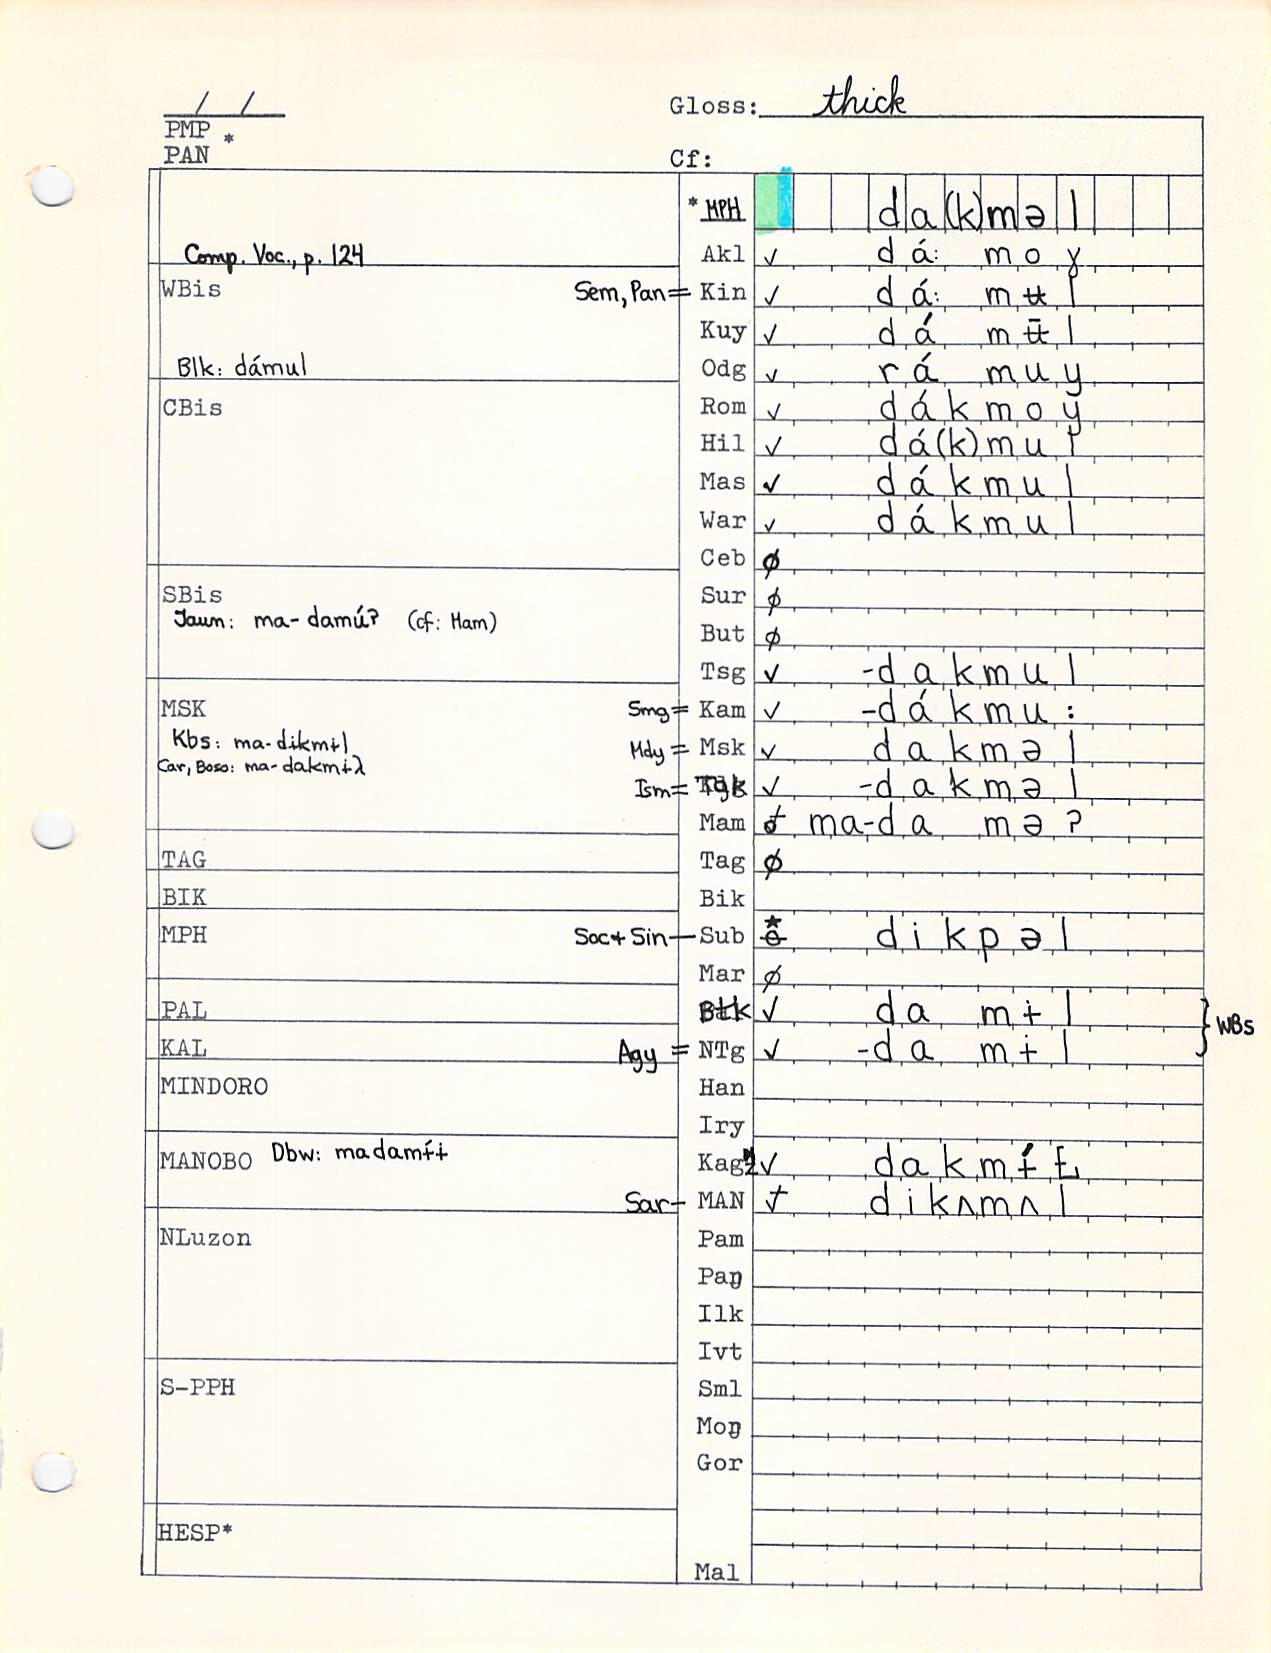 Gloss: thick
PMP *
PAN
Cf:
* MPH da(k)məl
Comp. Voc., p. 124
Akl ✓ dá: moɣ
WBis
Sem, Pan = Kin ✓ dá: mʉl
Kuy ✓ dá mʉ̄l
Blk: dámul
Odg ✓ rá muy
CBis
Rom ✓ dákmoy
Hil ✓ dá(k)mul
Mas ✓ dákmul
War ✓ dákmul
Ceb ∅
SBis
Sur ∅
Jaun: ma-damúʔ (cf: Ham)
But ∅
Tsg ✓ -dakmul
MSK
Smg = Kam ✓ -dákmu:
Kbs: ma-dikmɨl
Mdy = Msk ✓ dakməl
Car, Boso: ma-dakmɨλ
Ism = ✓ -dakməl
Mam ma-da məʔ
TAG
Tag ∅
BIK
Bik
MPH
Soc + Sin — Sub * dikpəl
Mar ∅
PAL
Btk ✓ da mɨl
WBs
KAL
Agy = NTg ✓ -da mɨl
MINDORO
Han
Iry
MANOBO Dbw: madamɨ́ɨ
Kag ✓ dakmɨ́Ł
Sar — MAN † dikʌmʌl
NLuzon
Pam
Paŋ
Ilk
Ivt
S-PPH
Sml
Moŋ
Gor
HESP*
Mal